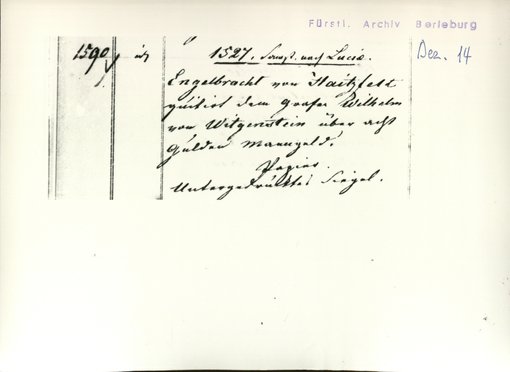 Fürstl. Archiv Berleburg
Dez. 14
1590
1527. Samst. nach Lucie.
Engelbracht von Haitzfeld
quitirt dem Grafen Wilhelm
von Witgenstein über acht
Gulden Manngeld.
Papier.
Untergedrücktes Siegel.